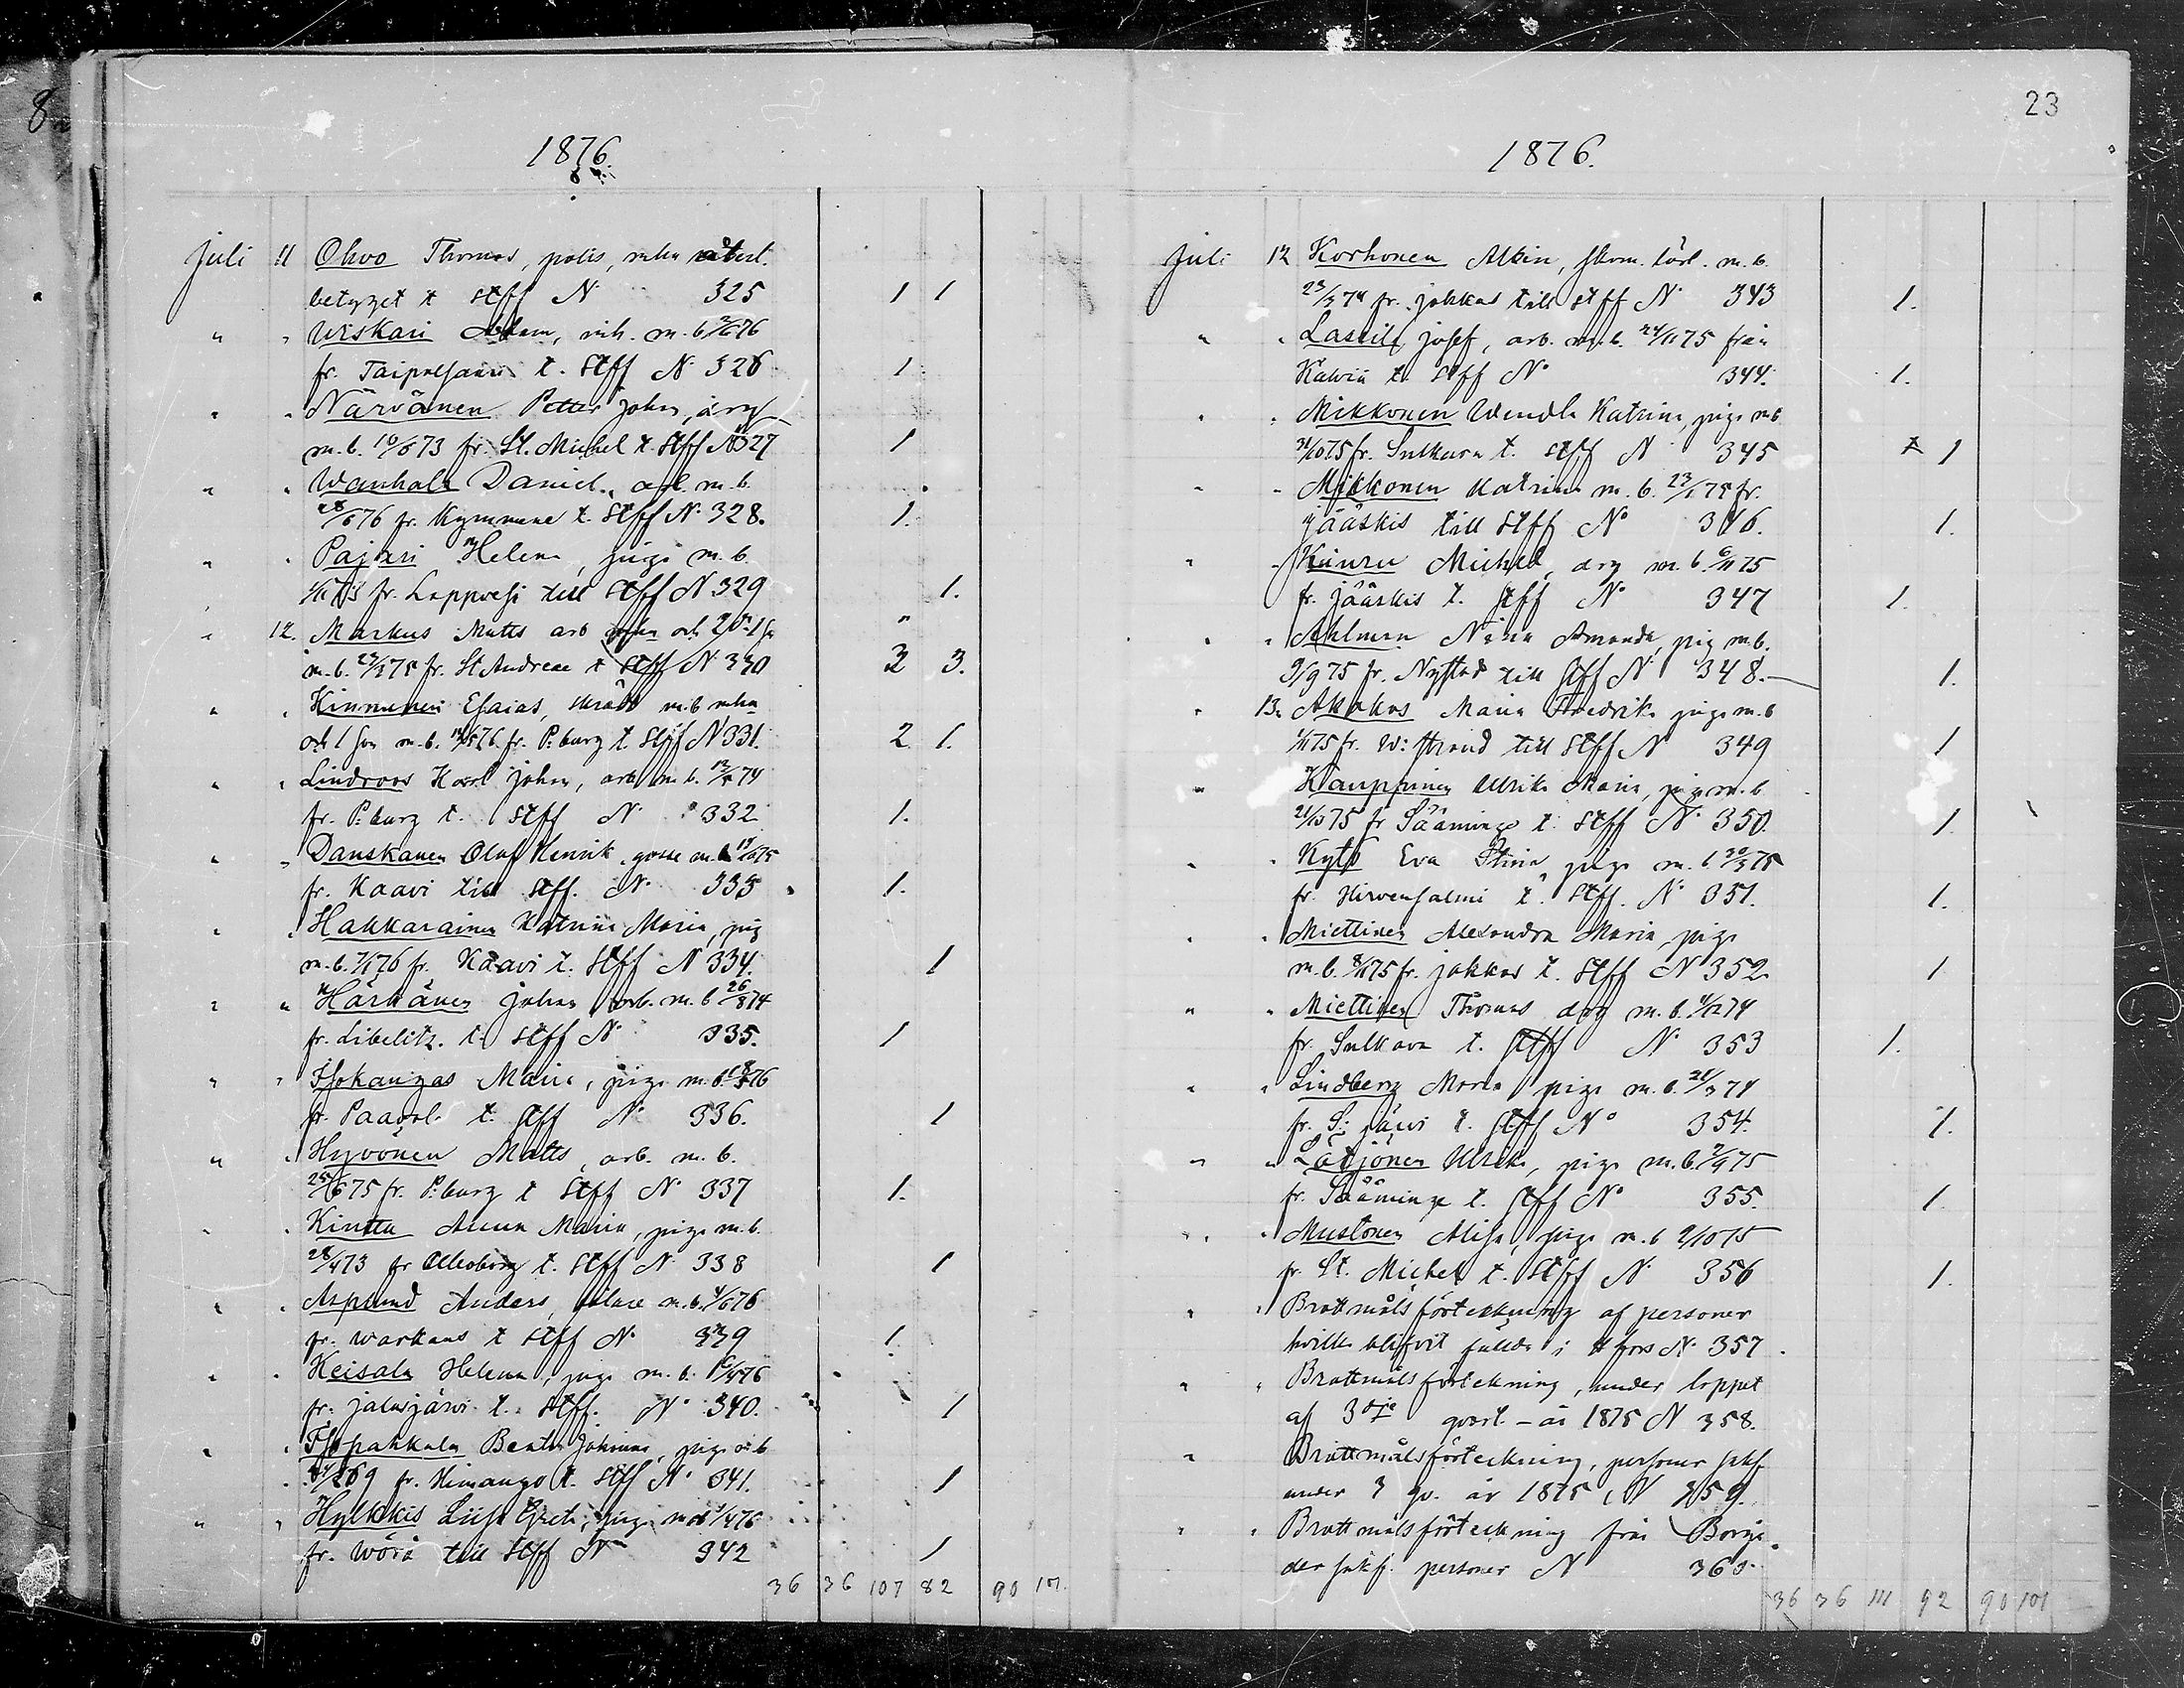 8
1876.
Juli 11 Ohvo Thomas, polis,
betyget t Stff N 325 1 1
" " Wiskari Adam, m. b. 2/6 76
fr. Taipalsaari t. Stff N 326 1
" " Närvänen Petter Johan, drg
m. b. 10/5 73 fr. St. Michel t. Stff N 327 1
" " Wanhala Daniel, arb. m. b.
28/6 76 fr. Kymmene t. Stff N. 328. 1.
" " Pajari Helena, piga m. b.
fr. Lappvesi till Stff N 329 1.
" 12. Markus Matts arb och 2 1
m. b. fr. St Andreae t Stff N 330 3 3.
" " Kinnunen Esaias, m. b
och 1 son m. b. fr. P:burg t. Stff N 331. 2 1.
" " Lindroos Karl Johan, arb m. b. 74
fr. P:burg t. Stff N 332 1.
" " Danskanen Olof Henrik gosse m. b 75
fr. Kaavi till Stff. N. 333 1.
" " Hakkarainen Katrina Maria, pig
m. b. 76 fr. Kaavi t. Stff N 334. 1
" " Härkänen Johan arb. m. b. 26/8 74
fr. Libelitz. t. Stff N 335. 1
" " Isokangas Maria, piga m. b. 76
fr. Paavol. t. Stff N. 336. 1
" " Hyvönen Matts, arb. m. b.
25/6 75 fr. P:burg t Stff N. 337 1.
" " Kintta Anna Maria, piga m. b.
28/4 73 fr Uleoborg t. Stff N. 338 1
" " Asplund Anders, m. b. 4/6 76
fr. Warkaus t Stff N. 339 1.
" " Keisala Helena, piga m. b. 6/4 76
fr. Jalasjärvi t. Stff. N. 340. 1
" " Isopahkala Johanna, piga m b
69 fr. Himango t. Stff N. 341. 1
" " Hylkkis Liisa Greta, piga m b 1/4 76
fr. Wörå till Stff N 342 1
36 36 107 82 90 101.
23
1876.
Juli 12 Korhonen Albin, m. b.
23/3 74 fr. Jokkas till Stff N. 343 1.
" " Lassila Josef, arb. m. b. 24/11 75 från
Kalvia t. Stff N° 344. 1.
" " Mikkonen Wendla Katrina, piga m b
75 fr. Sulkava t. Stff N 345 1
" " Mikkonen Katrina m. b. 23/1 75 fr.
Jääskis till Stff N° 346. 1.
" " Kiuru Michel, drg m. b. 6/11 75
fr. Jääskis t. Stff N° 347 1.
" " Ahlman Nina Amanda, pig m. b.
9/9 75 fr. Nystad till Stff N 348. 1.
" 13. Akokas Maria Fredrika piga m. b
75 fr. W: strand till Stff N 349 1
" " Kauppinen Ulrika Maria, piga m. b
21/10 75 fr Sääminge t. Stff N. 350. 1.
" " Kytö Eva Stina, piga m. b 30/3 75
fr. Hirvensalmi t. Stff. N. 351. 1.
" " Miettinen Alexandra Maria, piga
m. b. 75 fr. Jokkas t. Stff N 352 1
" " Miettinen Thomas drg m. b. 74
fr. Sulkava t. Stff N. 353 1.
" " Lindberg Maria piga m. b. 21/3 74
fr. S: järvi t. Stff N° 354. 1.
" " Lätjönen Ulrika, piga m. b. 75
fr. Sääminge t. Stff N° 355. 1.
" " Mustonen Alisa, piga m. b 2/10 75
fr. St. Michel t. Stff N 356 1.
" " Brottmålsförteckning af personer
hvilka blifvit fällda i H fors N. 357
" " Brottmålsförteckning, under loppet
af 3dje qvart. – år 1875 N 358.
" Brottmålsförteckning, personer sakf.
under 3 qv. år 1875, N 359.
" " Brottmålsförteckning från Borgå
der sakf. personer N 360.
36 36 111 92 90 101